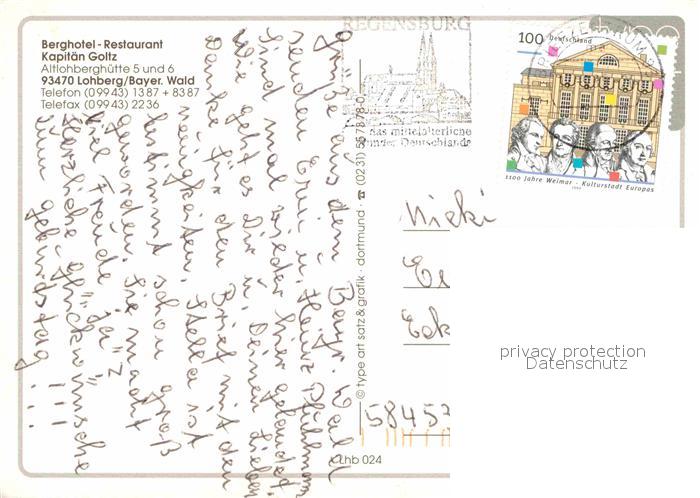 Berghotel - Restaurant
Kapitän Goltz
Altlohberghütte 5 und 6
93470 Lohberg/Bayer. Wald
Telefon (0 99 43) 13 87 + 83 87
Telefax (0 99 43) 22 36
REGENSBURG
das mittelalterliche
Wunder Deutschlands
100 Deutschland
1100 Jahre Weimar - Kulturstadt Europas
1999
Grüße aus dem Bayr. Wald
senden Erni u. Heinz
Sind mal wieder hier gelandet.
Wie geht es Dir u. Deinen Lieben
Danke für den Brief mit den
neuigkeiten. Stella ist
bestimmt schon groß
geworden. Sie macht
viel Freude "ja"
Herzliche Glückwünsche
zum geburtstag !!!
© type art satz & grafik · dortmund · ☎ (0231) 55 78 78-0
Nicki
5845
Lhb 024
privacy protection
Datenschutz